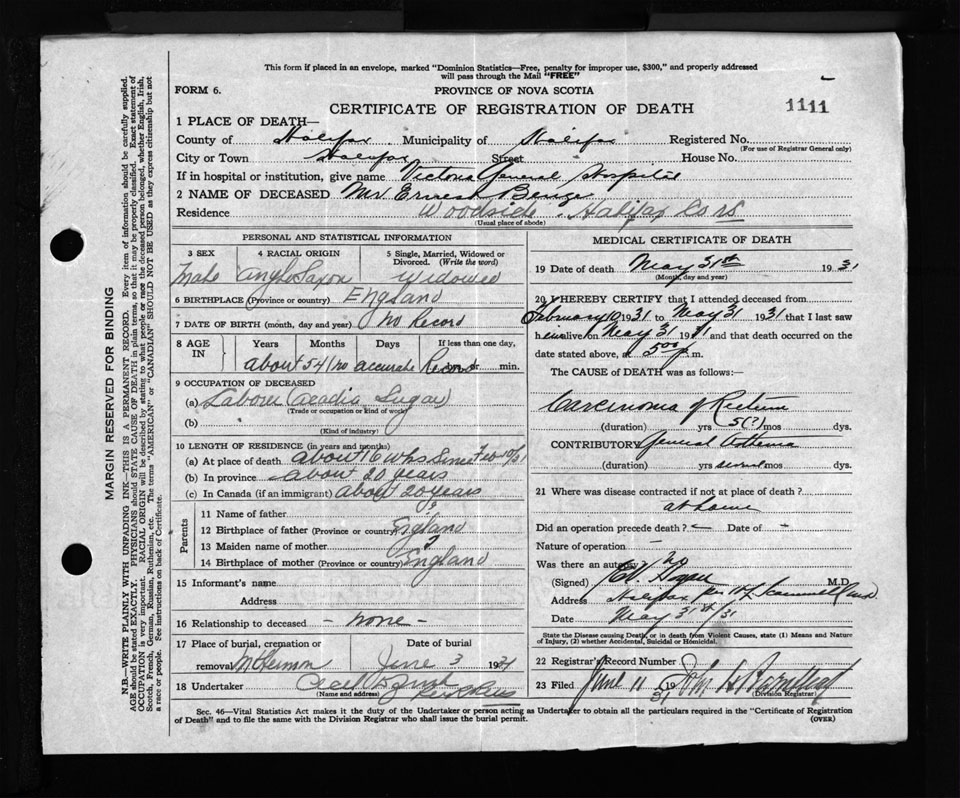 This form if placed in an envelope, marked "Dominion Statistics—Free, penalty for improper use, $300," and properly addressed
will pass through the Mail "FREE"
FORM 6.
PROVINCE OF NOVA SCOTIA
CERTIFICATE OF REGISTRATION OF DEATH
1111
1 PLACE OF DEATH—
County of Halifax Municipality of Halifax Registered No.
(For use of Registrar General only)
City or Town Halifax Street House No.
If in hospital or institution, give name Victoria General Hospital
2 NAME OF DECEASED Mr Ernest
Residence Woodside Halifax Co NS
(Usual place of abode)
PERSONAL AND STATISTICAL INFORMATION
3 SEX 4 RACIAL ORIGIN 5 Single, Married, Widowed or Divorced. (Write the word)
Male Anglo Saxon Widowed
6 BIRTHPLACE (Province or country) England
7 DATE OF BIRTH (month, day and year) no Record
8 AGE IN Years Months Days If less than one day,
hrs. or min.
about 54 / no accurate Record
9 OCCUPATION OF DECEASED
(a) Laborer (Acadia Sugar)
(Trade or occupation or kind of work)
(b)
(Kind of industry)
10 LENGTH OF RESIDENCE (in years and months)
(a) At place of death about 16 wks since Feb 10/31
(b) In province about 20 years
(c) In Canada (if an immigrant) about 20 years
Parents
11 Name of father ?
12 Birthplace of father (Province or country) England
13 Maiden name of mother ?
14 Birthplace of mother (Province or country) England
15 Informant's name
Address
16 Relationship to deceased - none -
17 Place of burial, cremation or Date of burial
removal June 3 1931
18 Undertaker
(Name and address)
MEDICAL CERTIFICATE OF DEATH
19 Date of death May 31st 1931
(Month, day and year)
20 I HEREBY CERTIFY that I attended deceased from
February 10 1931 to May 31 1931 that I last saw
him alive on May 31 1931 and that death occurred on the
date stated above, at 5 00 p.m.
The CAUSE of DEATH was as follows:—
Carcinoma of Rectum
(duration) yrs 5(?) mos dys.
CONTRIBUTORY General Asthenia
(duration) yrs several mos dys.
21 Where was disease contracted if not at place of death?
at home
Did an operation precede death? - Date of -
Nature of operation -
Was there an autopsy no
(Signed) M.D.
Address Halifax
Date May 31st/31
State the Disease causing Death, or in death from Violent Causes, state (1) Means and Nature
of Injury, (2) whether Accidental, Suicidal or Homicidal.
22 Registrar's Record Number
23 Filed June 11 1931
(Division Registrar)
Sec. 46—Vital Statistics Act makes it the duty of the Undertaker or person acting as Undertaker to obtain all the particulars required in the "Certificate of Registration
of Death" and to file the same with the Division Registrar who shall issue the burial permit.
(OVER)
MARGIN RESERVED FOR BINDING
N.B.—WRITE PLAINLY WITH UNFADING INK—THIS IS A PERMANENT RECORD. Every item of information should be carefully supplied.
AGE should be stated EXACTLY. PHYSICIANS should STATE CAUSE OF DEATH in plain terms, so that it may be properly classified. Exact statement of
OCCUPATION is very important. RACIAL ORIGIN will be described by stating to what people or race the deceased person belonged, whether English, Irish,
Scotch, French, German, Russian, Ruthenian, etc. The terms "AMERICAN" or "CANADIAN" SHOULD NOT BE USED as they express citizenship but not
a race or people. See instructions on back of Certificate.